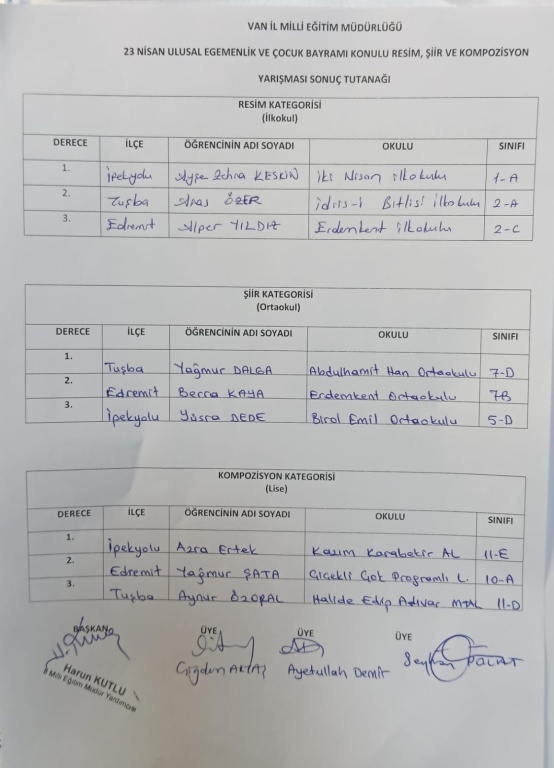 VAN İL MİLLİ EĞİTİM MÜDÜRLÜĞÜ
23 NİSAN ULUSAL EGEMENLİK VE ÇOCUK BAYRAMI KONULU RESİM, ŞİİR VE KOMPOZİSYON
YARIŞMASI SONUÇ TUTANAĞI
RESİM KATEGORİSİ
(İlkokul)
DERECE İLÇE ÖĞRENCİNİN ADI SOYADI OKULU SINIFI
1. İpekyolu Ayşe Zehra KESKİN İki Nisan İlkokulu 1-A
2. Tuşba Aras ÖZER İdris-i Bitlisi İlkokulu 2-A
3. Edremit Alper YILDIZ Erdemkent İlkokulu 2-C
ŞİİR KATEGORİSİ
(Ortaokul)
DERECE İLÇE ÖĞRENCİNİN ADI SOYADI OKULU SINIFI
1. Tuşba Yağmur DALGA Abdulhamit Han Ortaokulu 7-D
2. Edremit Berra KAYA Erdemkent Ortaokulu 7B
3. İpekyolu Yüsra DEDE Birol Emil Ortaokulu 5-D
KOMPOZİSYON KATEGORİSİ
(Lise)
DERECE İLÇE ÖĞRENCİNİN ADI SOYADI OKULU SINIFI
1. İpekyolu Azra Ertek Kazım Karabekir AL 11-E
2. Edremit Yağmur ŞATA Çiçekli Çok Programlı L. 10-A
3. Tuşba Aynur ÖZORAL Halide Edip Adıvar MTAL 11-D
BAŞKAN ÜYE ÜYE ÜYE
Harun KUTLU Çiğdem AKTAŞ Ayetullah Demir Seyhan POLAT
İl Milli Eğitim Müdür Yardımcısı